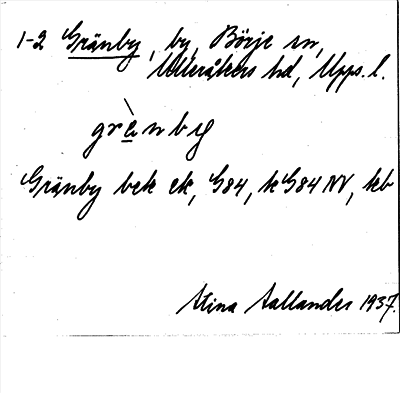 1-2 Gränby, by, Börje sn,
Ulleråkers hd, Upps. l.
grànby
Gränby bek ek, G84, k G84 NV, kb
Stina Aallander 1937.